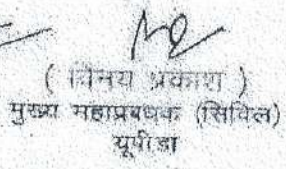 ( विनय प्रकाश )
मुख्य महाप्रबंधक (सिविल)
यूपीडा